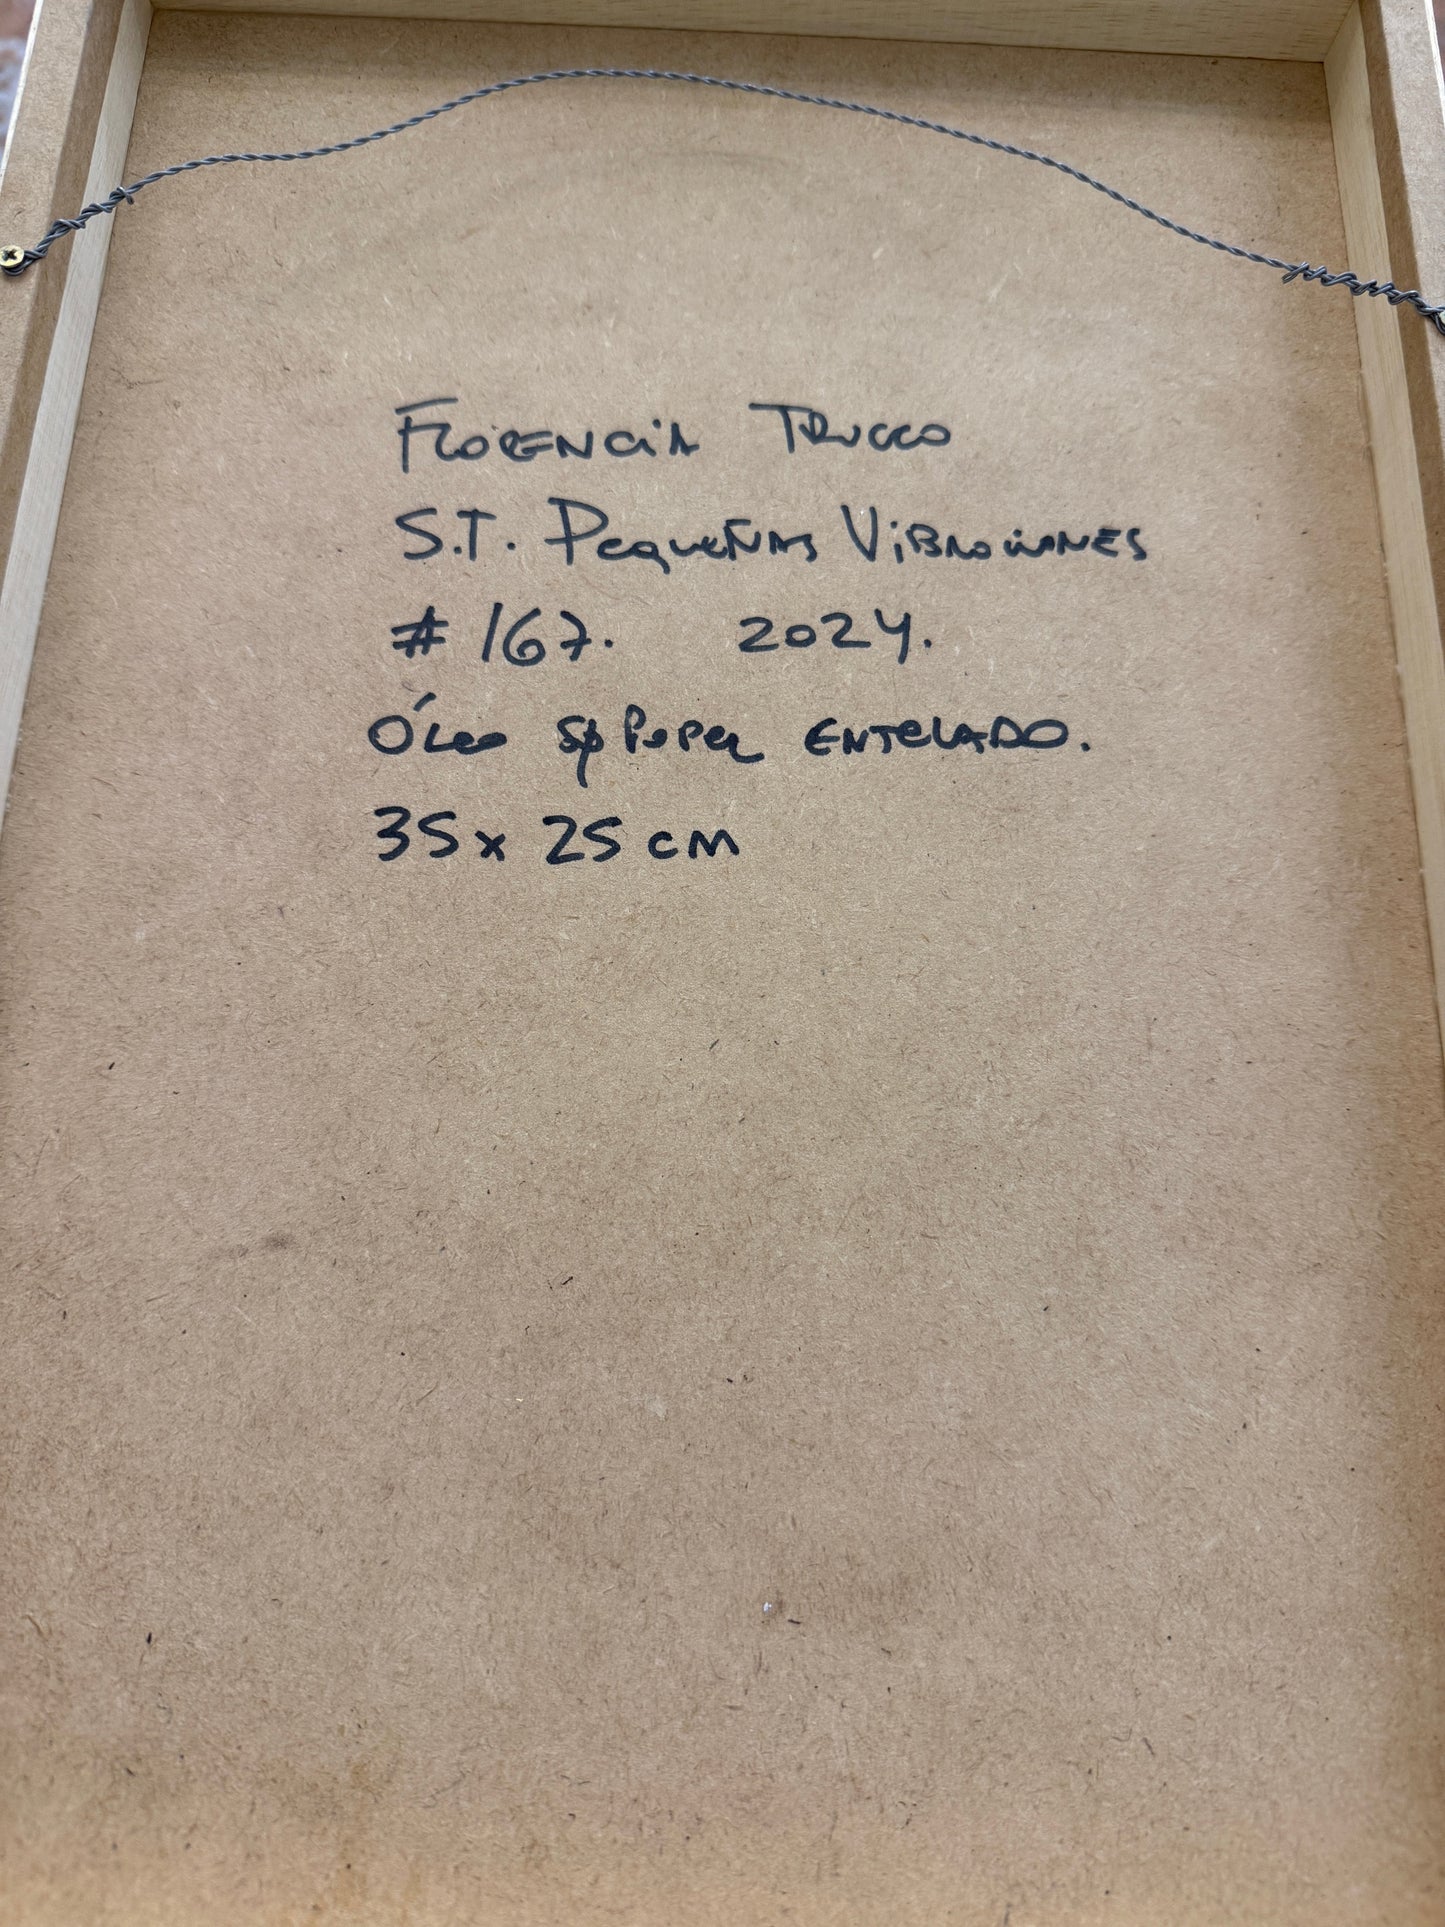 FLORENCIA TRUCCO
S.T. PEQUEÑAS VIBRACIONES
# 167. 2024.
ÓLEO S/ PAPEL ENTELADO.
35 x 25 CM